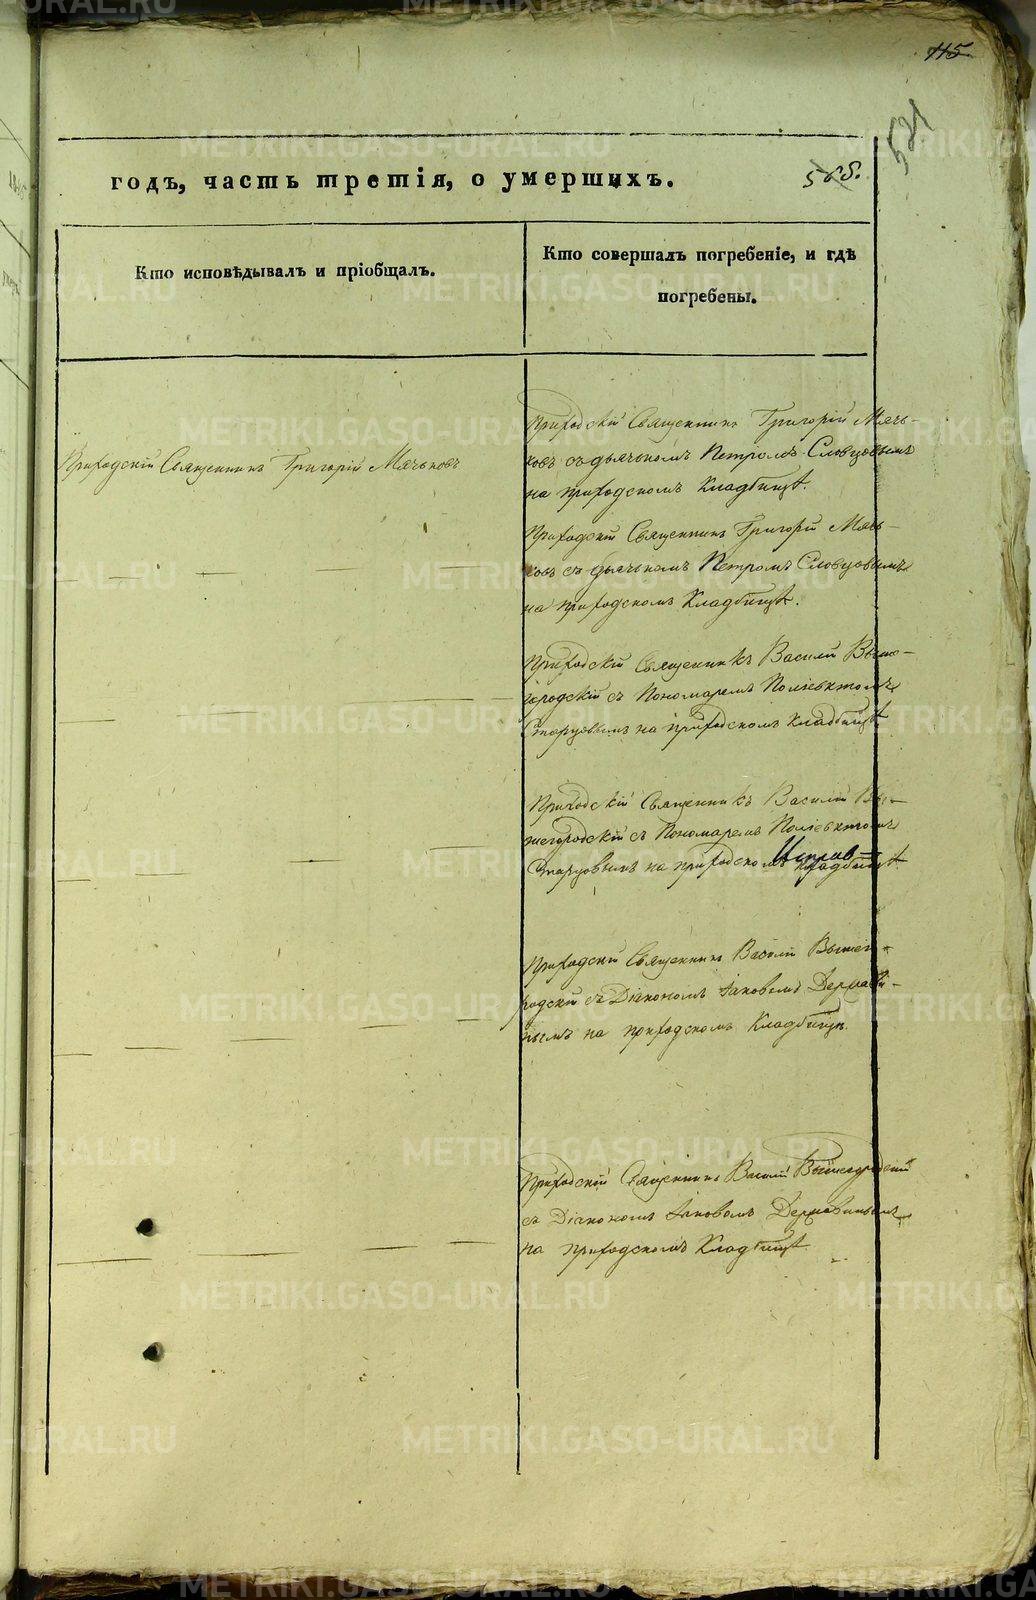 115
521
годъ, часть третія, о умершихъ.
565.
Кто исповѣдывалъ и пріобщалъ.
Кто совершалъ погребеніе, и гдѣ
погребены.
Приходскій Священникъ Григорій Мячьковъ
Приходскій Священникъ Григорій Мячь-
ковъ съ дьячькомъ Петромъ Словцовымъ
на приходскомъ Кладбищѣ.
Приходскій Священникъ Григорій Мячь-
ковъ съ дьячькомъ Петромъ Словцовымъ
на приходскомъ Кладбищѣ.
Приходскій Священникъ Василій Выше-
городскій съ Пономаремъ Поліевктомъ
Старцовымъ на приходскомъ кладбищѣ
Приходскій Священникъ Василій Вы-
шегородскій съ Пономаремъ Поліевктомъ
Старцовымъ на приходскомъ кладбищѣ.
Приходскій Священникъ Василій Вышего-
родскій съ Діакономъ Іаковомъ Держави-
нымъ на приходскомъ Кладбищѣ.
Приходскій Священникъ Василій Вышегородскій
съ Діакономъ Іаковомъ Державинымъ
на приходскомъ Кладбищѣ
METRIKI.GASO-URAL.RU